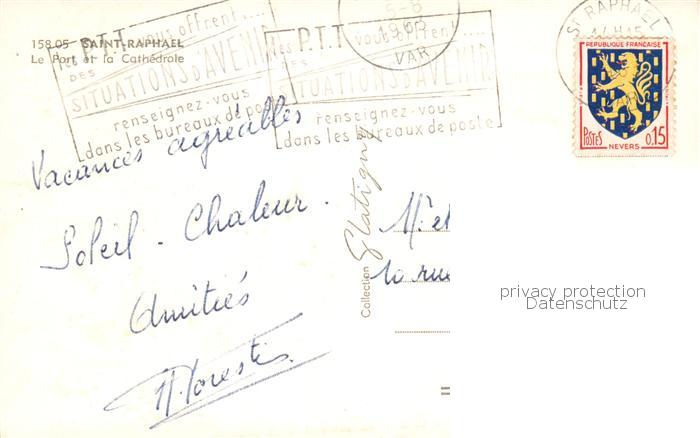 158.05 SAINT-RAPHAEL
Le Port et la Cathédrale
les P.T.T vous offrent....
DES
SITUATIONS D'AVENIR
renseignez-vous
dans les bureaux de poste
les P.T.T vous offrent....
DES
SITUATIONS D'AVENIR
renseignez-vous
dans les bureaux de poste
VAR
ST RAPHAEL
REPUBLIQUE FRANÇAISE
POSTES 0,15
NEVERS
Vacances agréables
Soleil - Chaleur.
Amitiés
Collection
M. et
10 rue
privacy protection
Datenschutz